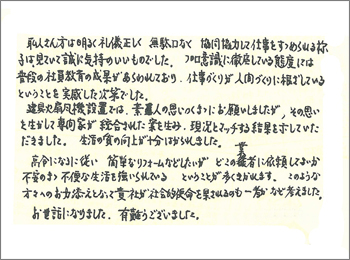 職人さん方は明るく礼儀正しく 無駄口なく 協同協力して仕事をすすめられる様
子は見ていて誠に気持のいいものでした。 プロ意識に徹底している態度には
普段の社員教育の成果があらわれており、仕事づくりが人間づくりに根ざしている
ということを実感した次第でした。
建具や扇風機設置では、素人の思いつくままにお願いしましたが、その思い
を生かして専門家が総合された案を生み、現況とマッチする結果を示していた
だきました。 生活の質の向上が十分はかられました。
高令になるに従い 簡単なリフォームなどしたいが どこの業者に依頼してよいか
不安のまゝ不便な生活を強いられている ということが多くきかれます。このような
方々へのお力添えとなって貴社が社会的使命を果されるのも一考かなど考えました。
お世話になりました。有難うございました。